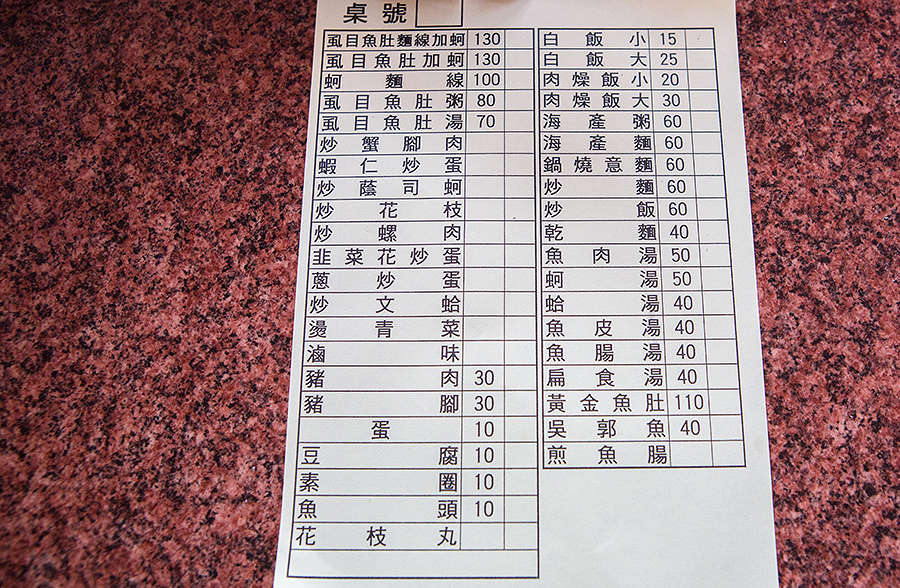 桌號
虱目魚肚麵線加蚵 130
虱目魚肚加蚵 130
蚵麵線 100
虱目魚肚粥 80
虱目魚肚湯 70
炒蟹腳肉
蝦仁炒蛋
炒蔭司蚵
炒花枝
炒螺肉
韭菜花炒蛋
蔥炒蛋
炒文蛤
燙青菜
滷味
豬肉 30
豬腳 30
蛋 10
豆腐 10
素圈 10
魚頭 10
花枝丸
白飯小 15
白飯大 25
肉燥飯小 20
肉燥飯大 30
海產粥 60
海產麵 60
鍋燒意麵 60
炒麵 60
炒飯 60
乾麵 40
魚肉湯 50
蚵湯 50
蛤湯 40
魚皮湯 40
魚腸湯 40
扁食湯 40
黃金魚肚 110
吳郭魚 40
煎魚腸